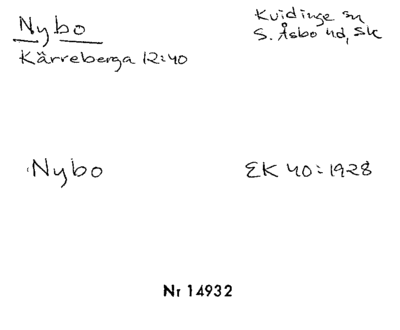 Nybo
Kvidinge sn
S. Åsbo hd, Sk
Kärreberga 12:40
Nybo
EK 40:1928
Nr 14932